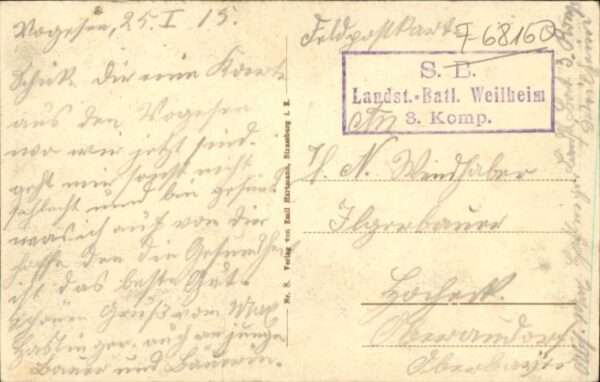 Vogesen, 25. I 15.
Schick Dir eine Karte
aus den Vogesen
wo wir jetzt sind.
geht mir soweit nicht
schlecht und bin gesund
was ich auch von Dir
hoffe den die Gesundheit
ist das beste Gut.
schönen Gruß vom Max
auch an junge
Bauer und Bäuerin.
Nr. 8. Verlag von Emil Hartmann, Strassburg i. E.
Feldpostkarte
F-68160
S. B.
Landst.-Batl. Weilheim
3. Komp.
An
H. N. Windhaber
Ilgerbauer
Oberaudorf
Oberbayern